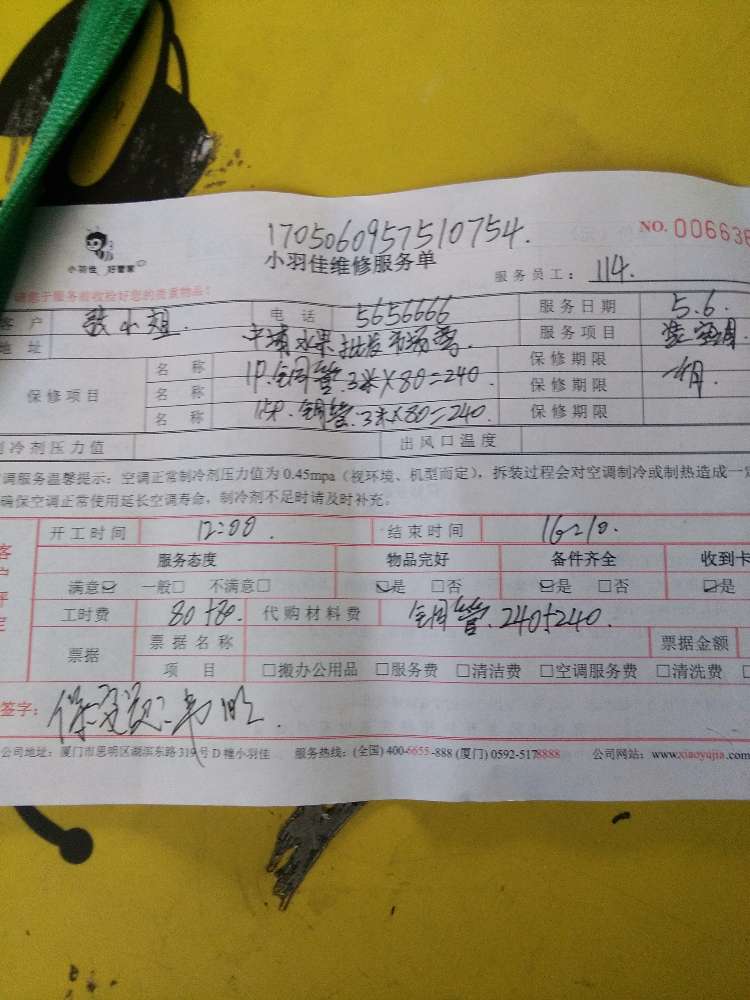 1705060957510754.
小羽佳 好管家
小羽佳维修服务单
NO. 006636
服务员工： 114.
请您于服务前收检好您的贵重物品！
客 户 小姐. 电 话 5656666 服务日期 5.6.
地 址 水果批发市场 服务项目 装空调
保修项目
名 称 1P.铜管.3米×80=240 保修期限 一个月
名 称 1.5P.铜管.3米×80=240. 保修期限
名 称 保修期限
制冷剂压力值 出风口温度
调服务温馨提示：空调正常制冷剂压力值为 0.45mpa（视环境、机型而定），拆装过程会对空调制冷或制热造成一定
确保空调正常使用延长空调寿命，制冷剂不足时请及时补充。
客户评定
开工时间 12:00. 结束时间 16:10.
服务态度 物品完好 备件齐全 收到卡
满意☑ 一般□ 不满意□ ☑是 □否 ☑是 □否 ☑是
工时费 80+80. 代购材料费 铜管.240+240.
票据 票据名称 票据金额
项 目 □搬办公用品 □服务费 □清洁费 □空调服务费 □清洗费
签字：
公司地址：厦门市思明区湖滨东路 319 号 D 幢小羽佳 服务热线：(全国) 400-6655-888 (厦门) 0592-5178888 公司网站：www.xiaoyujia.com